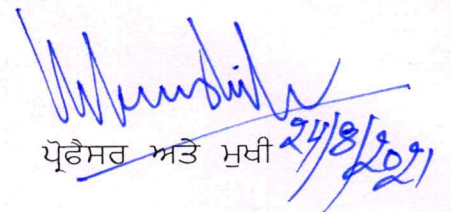 ਪ੍ਰੋਫੈਸਰ ਅਤੇ ਮੁਖੀ 24/8/2021